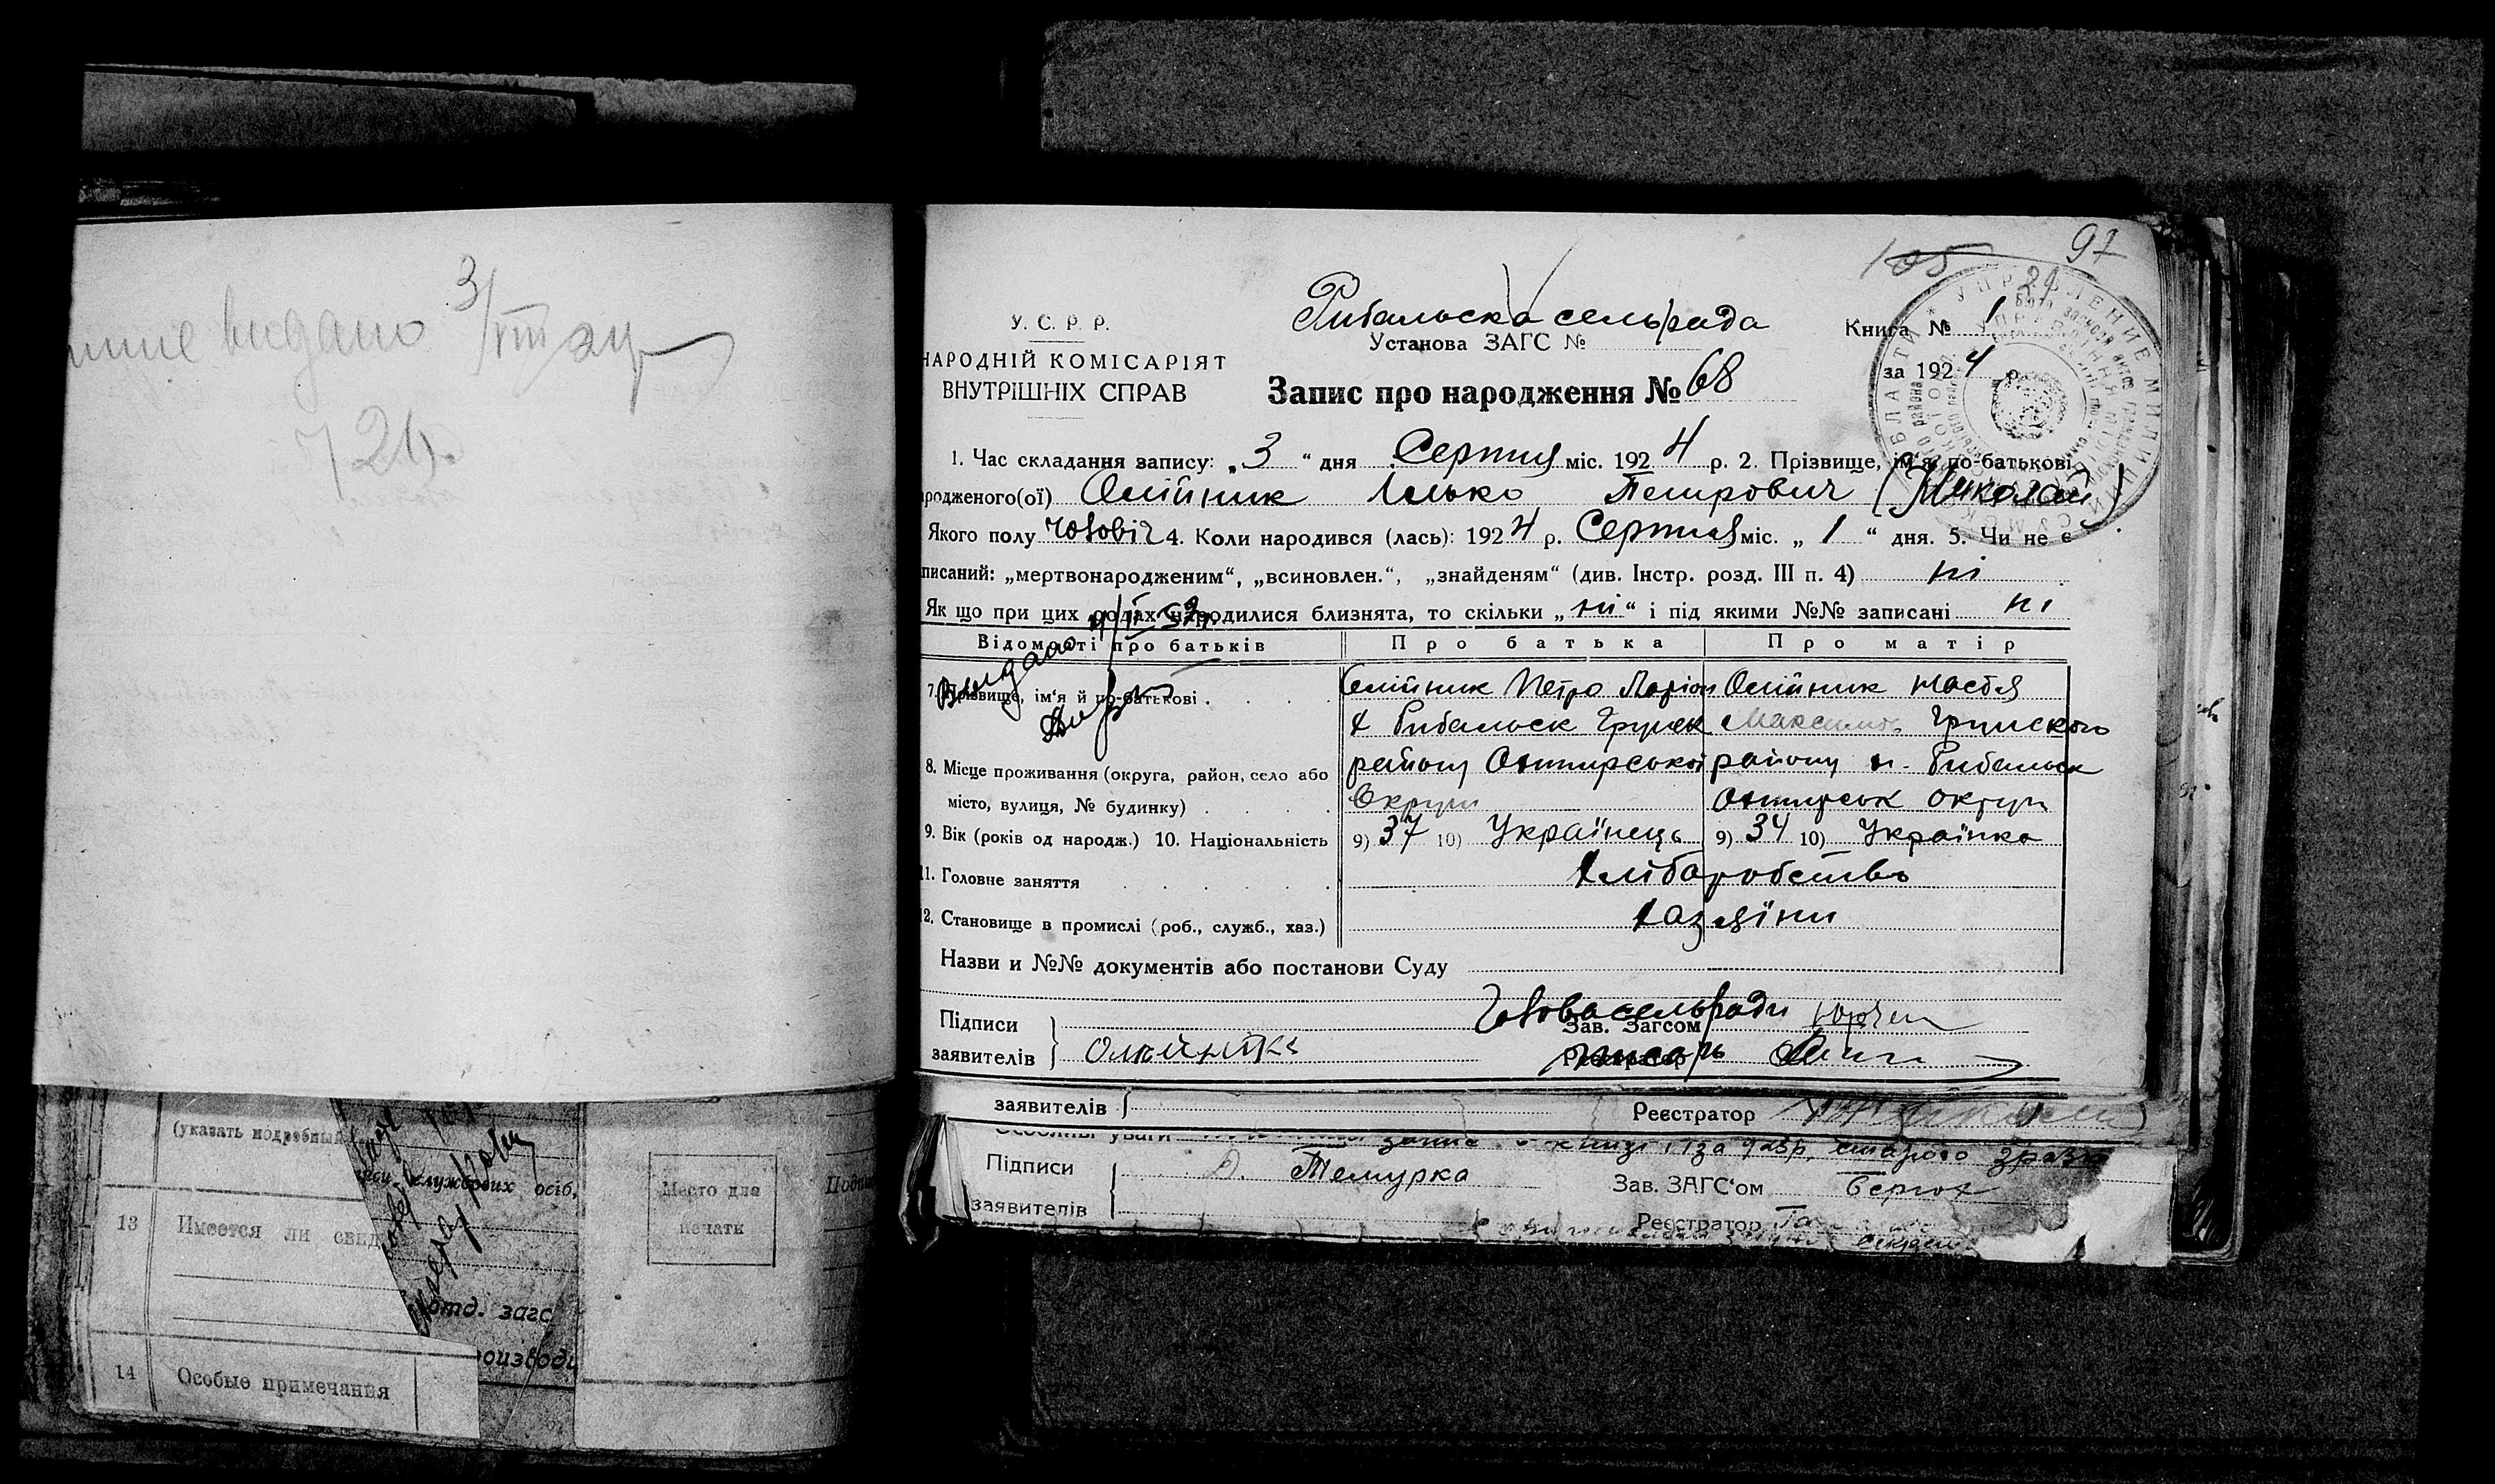 видано 3/VIII
726.
105
97
Рибальска сельрада
У. С. Р. Р.
Установа ЗАГС №
Книга № 1
НАРОДНІЙ КОМІСАРІЯТ
за 1924 р.
ВНУТРІШНІХ СПРАВ
Запис про народження № 68
УПРАВЛЕНИЕ МИЛИЦИИ
1. Час складання запису: „3“ дня Серпня міс. 1924 р. 2. Прізвище, ім'я по-батькові
родженого(ої) Олійник Ілько Петрович (Миколай)
Якого полу чоловіч 4. Коли народився (лась): 1924 р. Серпня міс. „1“ дня. 5. Чи не є
писаний: „мертвонародженим“, „всиновлен.“, „знайденям“ (див. Інстр. розд. III п. 4) ні
Як що при цих родах народилися близнята, то скільки „ні“ і під якими №№ записані ні
Відомості про батьків Про батька Про матір
Видано
7. Прізвище, ім'я й по-батькові Олійник Петро Ларіон Олійник Настя
х Рибальск Грунск Максимов Грунского
8. Місце проживання (округа, район, село або району Охтирської району х. Рибальск
місто, вулиця, № будинку) Округи Охтирськ округи
9. Вік (років од народж.) 10. Національність 9) 37 10) Українець 9) 34 10) Українка
11. Головне заняття хліборобство
12. Становище в промислі (роб., служб., хаз.) хазяїни
Назви и №№ документів або постанови Суду
Голова сельради
Підписи Зав. Загсом
заявителів Олийнике Реєстратор писарь
заявителів Реєстратор
Особливі уваги книзі і за старого
Підписи Д. Темурка Зав. ЗАГС'ом
заявителів Реєстратор
(указать подробный
службових осіб,
Место для
печати
13 Имеется ли свид
отд. загс
14 Особые примечания